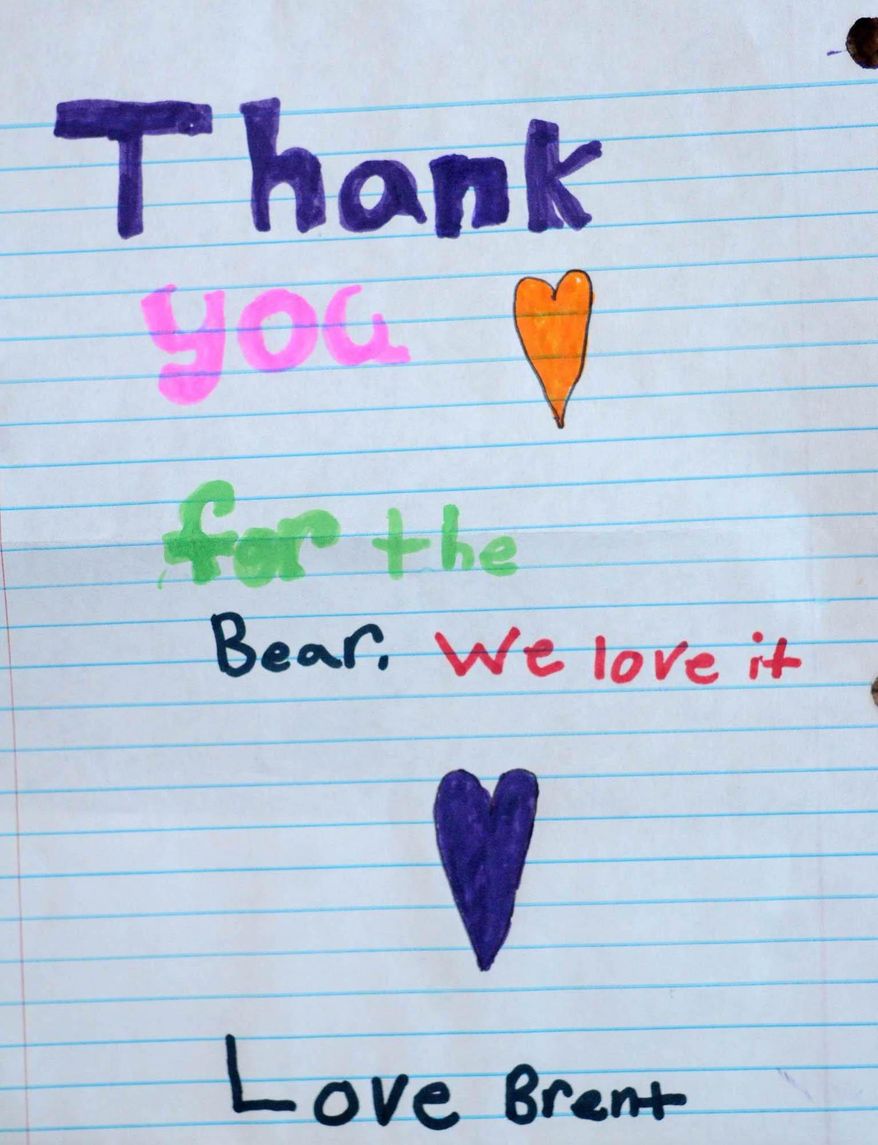 Thank
you
for the
Bear. We love it
Love Brent